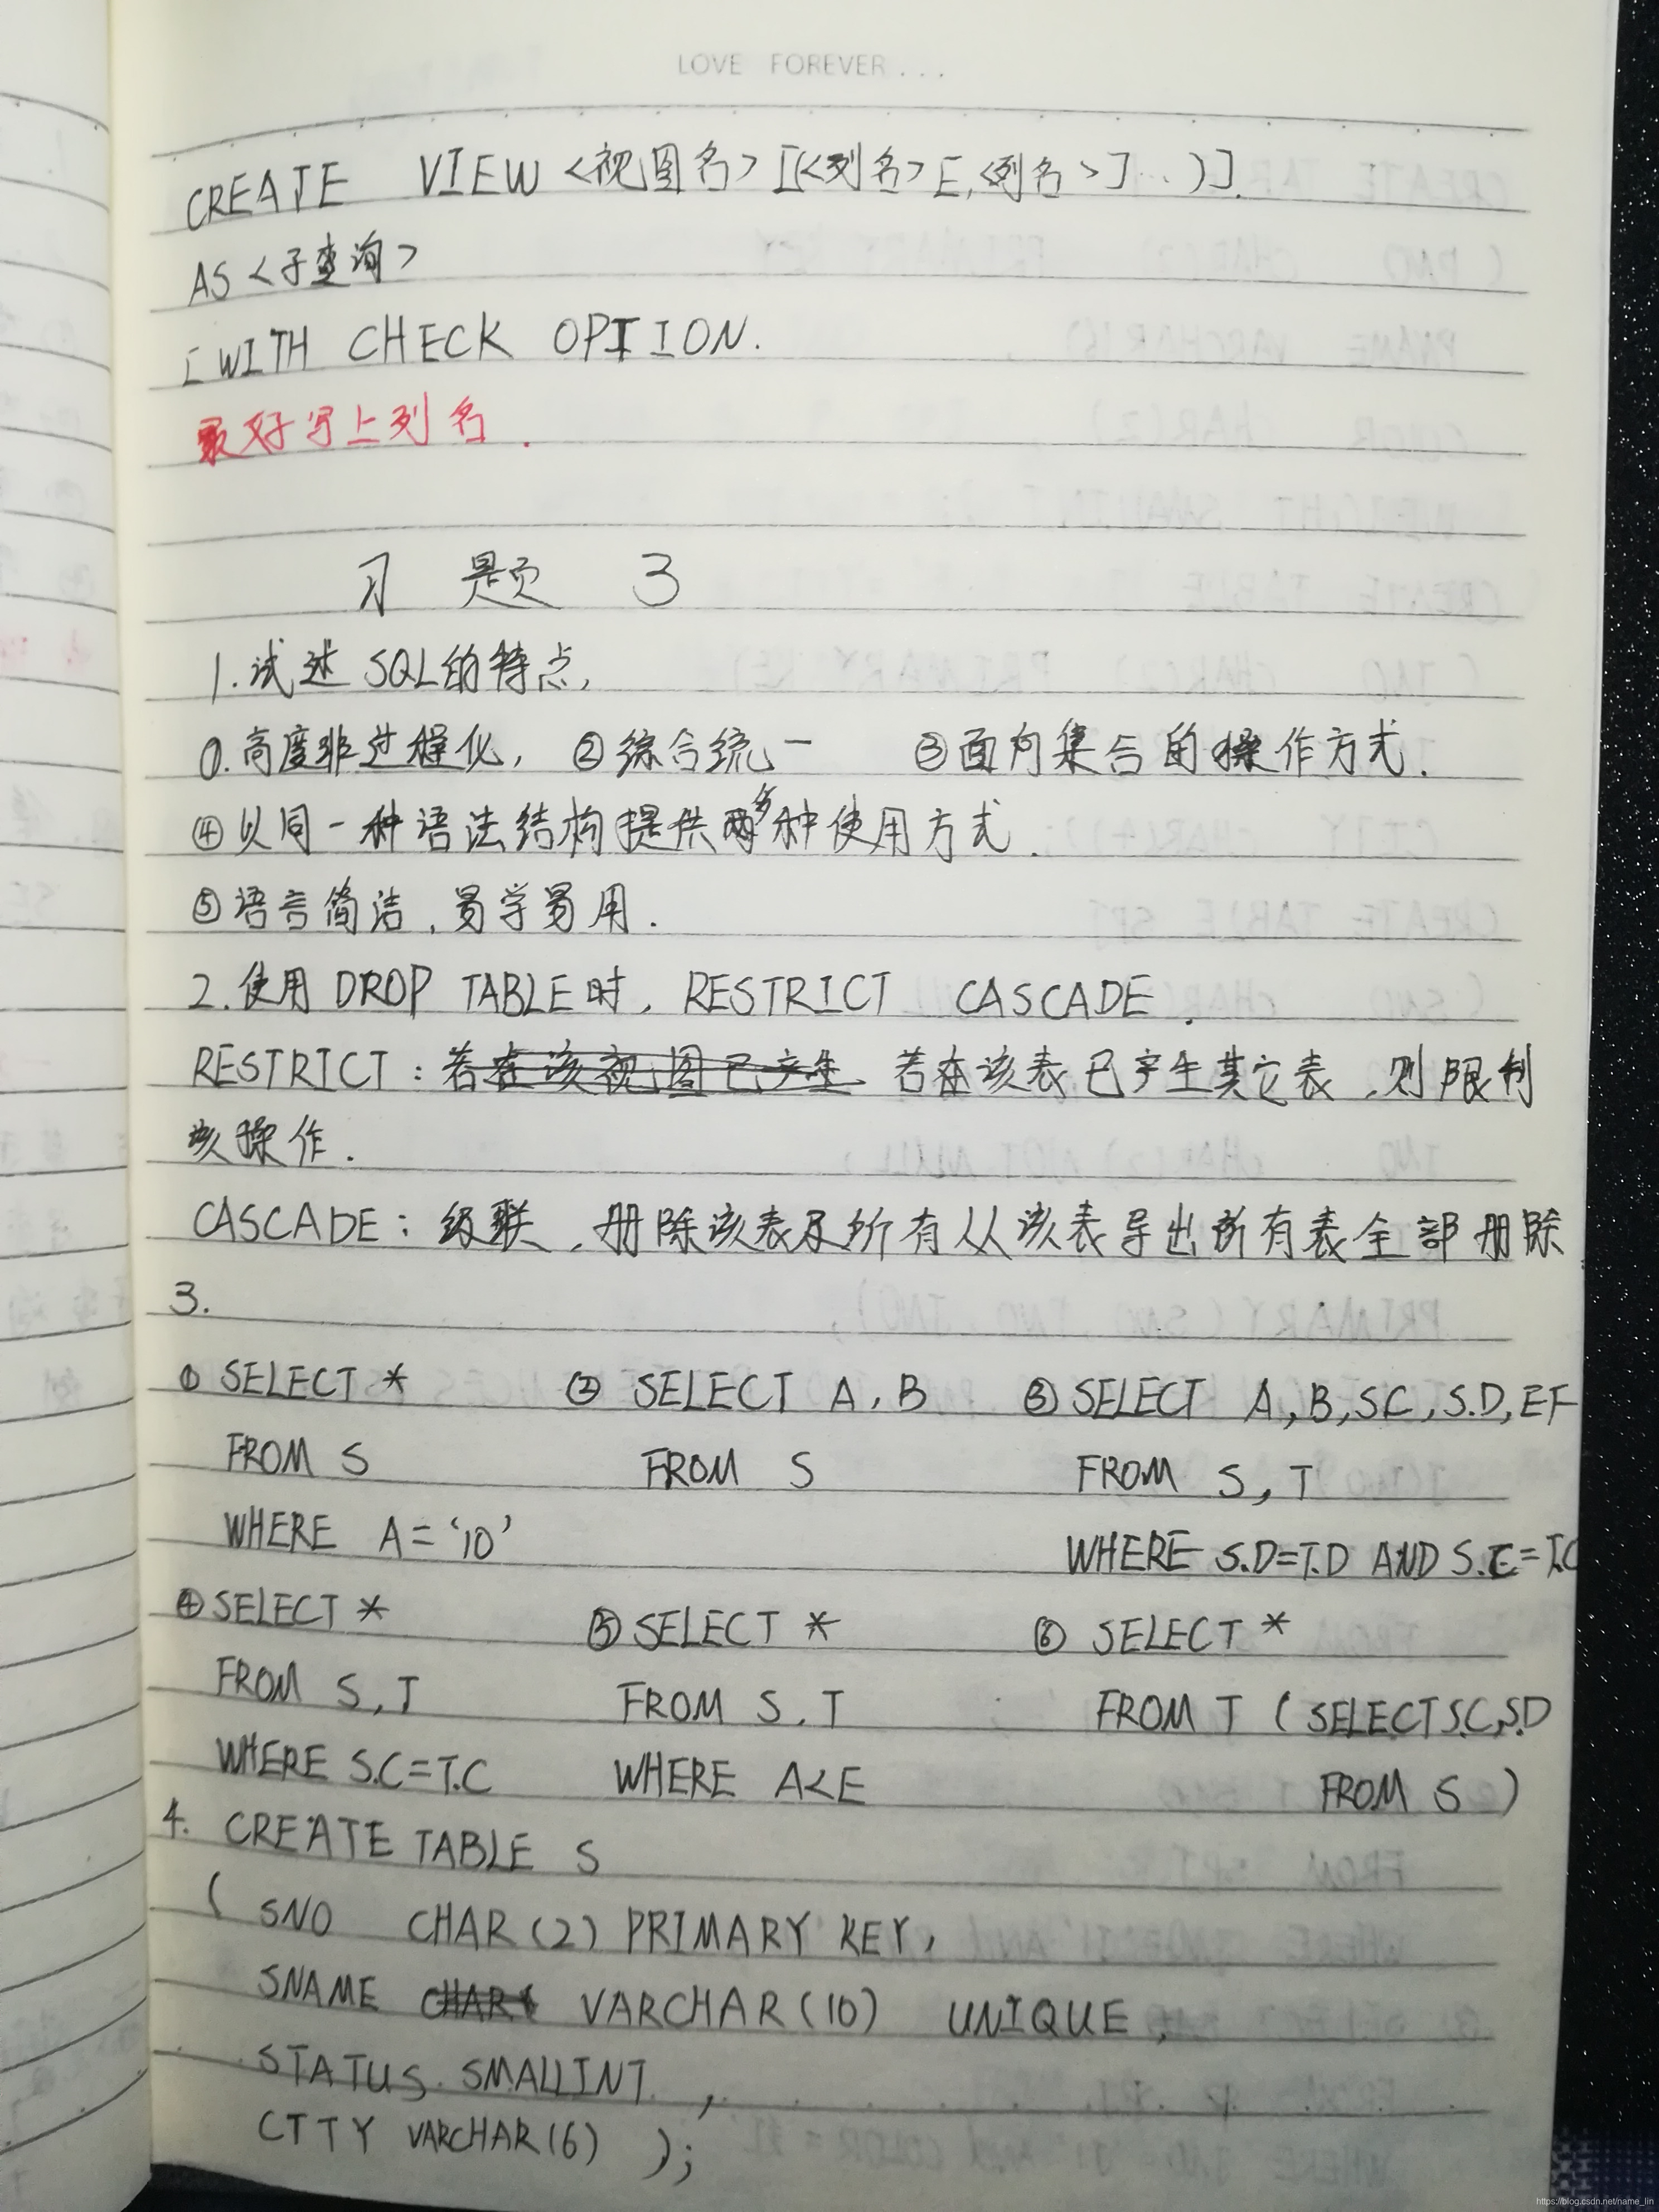 LOVE FOREVER...
CREATE VIEW <视图名> [(<列名> [,<列名>]...)].
AS <子查询>
[WITH CHECK OPTION.
最好写上列名.
习题 3
1.试述 SQL的特点.
①.高度非过程化, ②综合统一 ③面向集合的操作方式.
④以同一种语法结构提供多种使用方式.
⑤语言简洁,易学易用.
2.使用 DROP TABLE时, RESTRICT CASCADE.
RESTRICT: 若在该视图已产生 若在该表已产生其它表,则限制
该操作.
CASCADE: 级联,册除该表及所有从该表导出所有表全部册除
3.
① SELECT * ② SELECT A,B ③ SELECT A,B,SC,S.D,EF
FROM S FROM S FROM S,T
WHERE A='10' WHERE S.D=T.D AND S.C=T.C
④ SELECT * ⑤ SELECT * ⑥ SELECT *
FROM S,T FROM S,T FROM T (SELECT S.C,S.D
WHERE S.C=T.C WHERE A<E FROM S)
4. CREATE TABLE S
( SNO CHAR(2) PRIMARY KEY,
SNAME CHAR( VARCHAR(10) UNIQUE,
STATUS SMALLINT,
CTTY VARCHAR(6) );
https://blog.csdn.net/name_lin